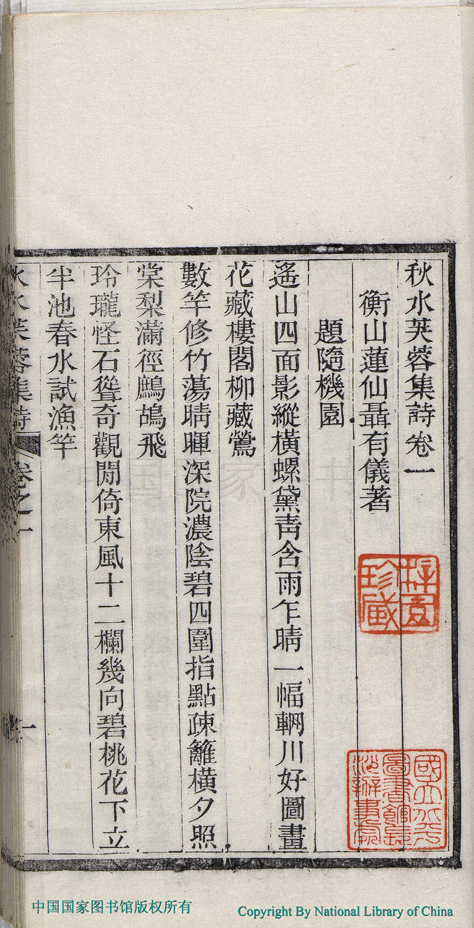 秋水芙蓉集詩卷一
衡山蓮仙聶有儀著
題隨機園
遙山四面影縱橫螺黛靑含雨乍晴一幅輞川好圖畫
花藏樓閣柳藏鶯
數竿修竹蕩晴暉深院濃陰碧四圍指點疎籬橫夕照
棠梨滿徑鷓鴣飛
玲瓏怪石聳奇觀閒倚東風十二欄幾向碧桃花下立
半池春水試漁竿
秋水芙蓉集詩 卷之一 一
珍藏
國立北平圖書館長沙辦事處
中国国家图书馆版权所有
Copyright By National Library of China